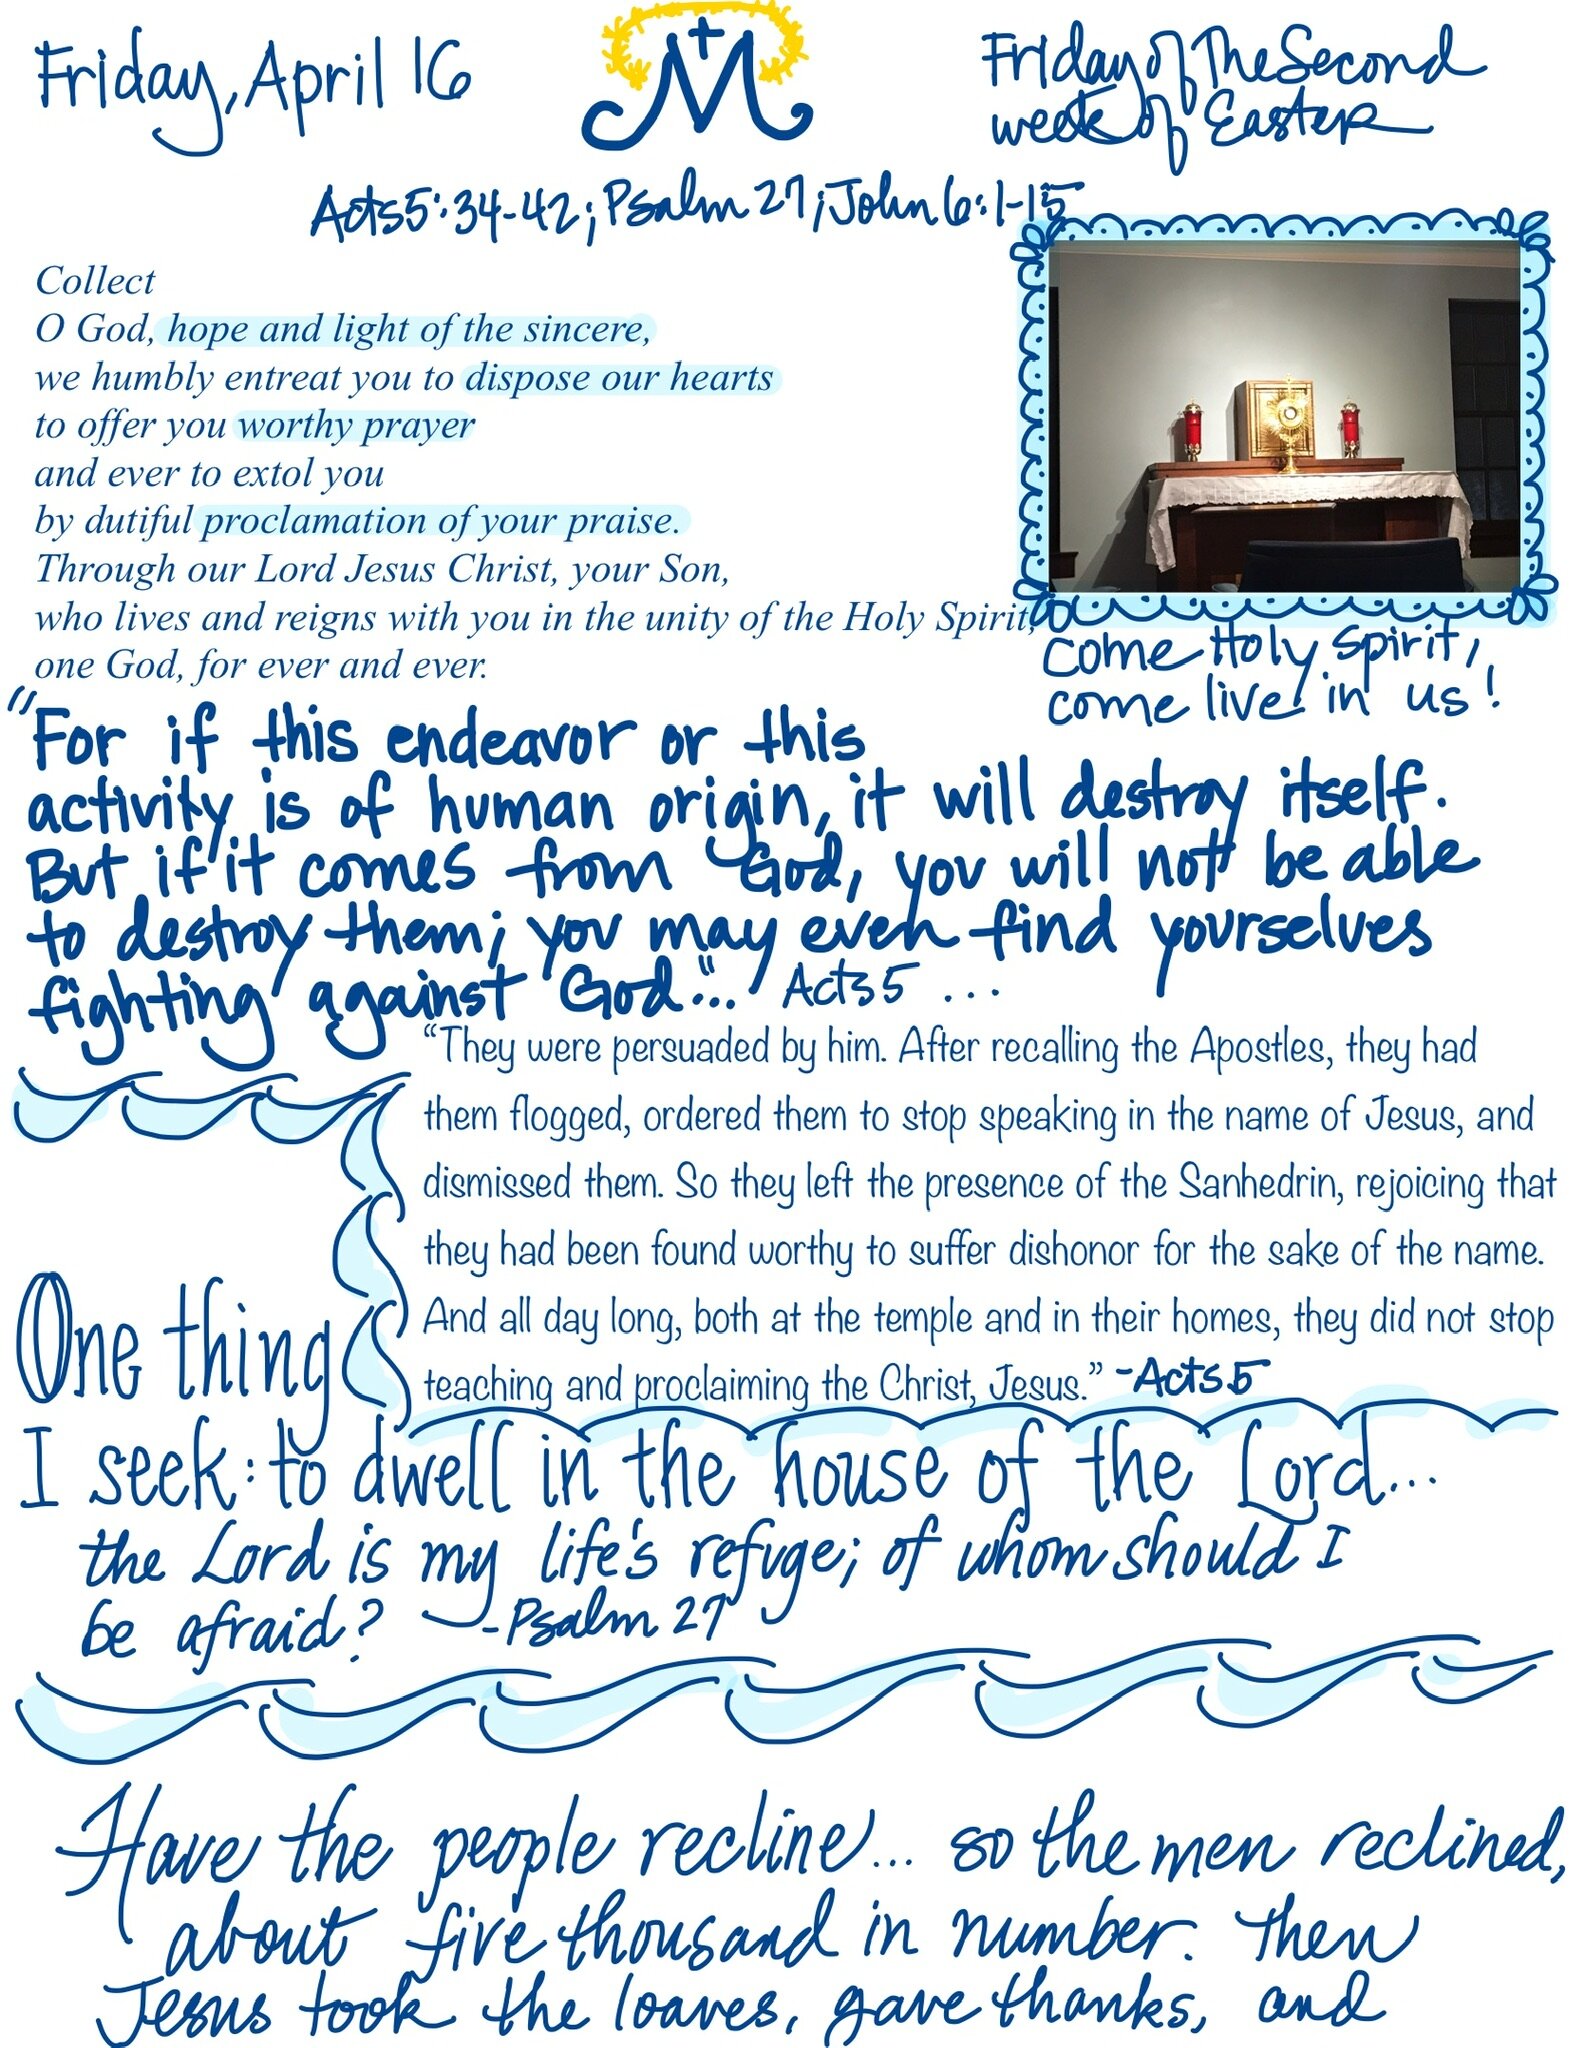 Friday, April 16
M
Friday of the Second
week of Easter
Acts 5:34-42; Psalm 27; John 6:1-15
Collect
O God, hope and light of the sincere,
we humbly entreat you to dispose our hearts
to offer you worthy prayer
and ever to extol you
by dutiful proclamation of your praise.
Through our Lord Jesus Christ, your Son,
who lives and reigns with you in the unity of the Holy Spirit,
one God, for ever and ever.
Come Holy Spirit,
come live in us!
"For if this endeavor or this
activity is of human origin, it will destroy itself.
But if it comes from God, you will not be able
to destroy them; you may even find yourselves
fighting against God."... Acts 5 ...
“They were persuaded by him. After recalling the Apostles, they had
them flogged, ordered them to stop speaking in the name of Jesus, and
dismissed them. So they left the presence of the Sanhedrin, rejoicing that
they had been found worthy to suffer dishonor for the sake of the name.
And all day long, both at the temple and in their homes, they did not stop
teaching and proclaiming the Christ, Jesus.” -Acts 5
One thing
I seek: to dwell in the house of the Lord...
the Lord is my life's refuge; of whom should I
be afraid? -Psalm 27
Have the people recline... so the men reclined,
about five thousand in number. Then
Jesus took the loaves, gave thanks, and